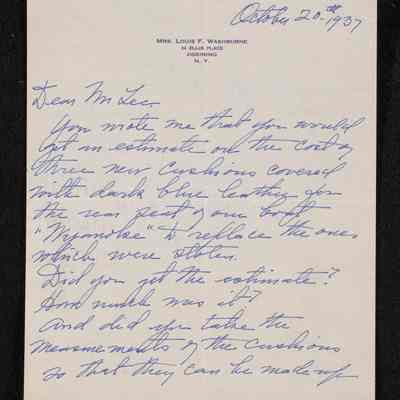 October 20th 1937
MRS. LOUIS F. WASHBURNE
ELLIS PLACE
OSSINING
N. Y.
Dear Mr Lee.
You wrote me that you would
get an estimate on the cost of
three new cushions covered
with dark blue leather for
the rear seat of our boat
to replace the ones
which were stolen.
Did you get the estimate?
How much was it?
And did you take the
measurements of the cushions
so that they can be made up